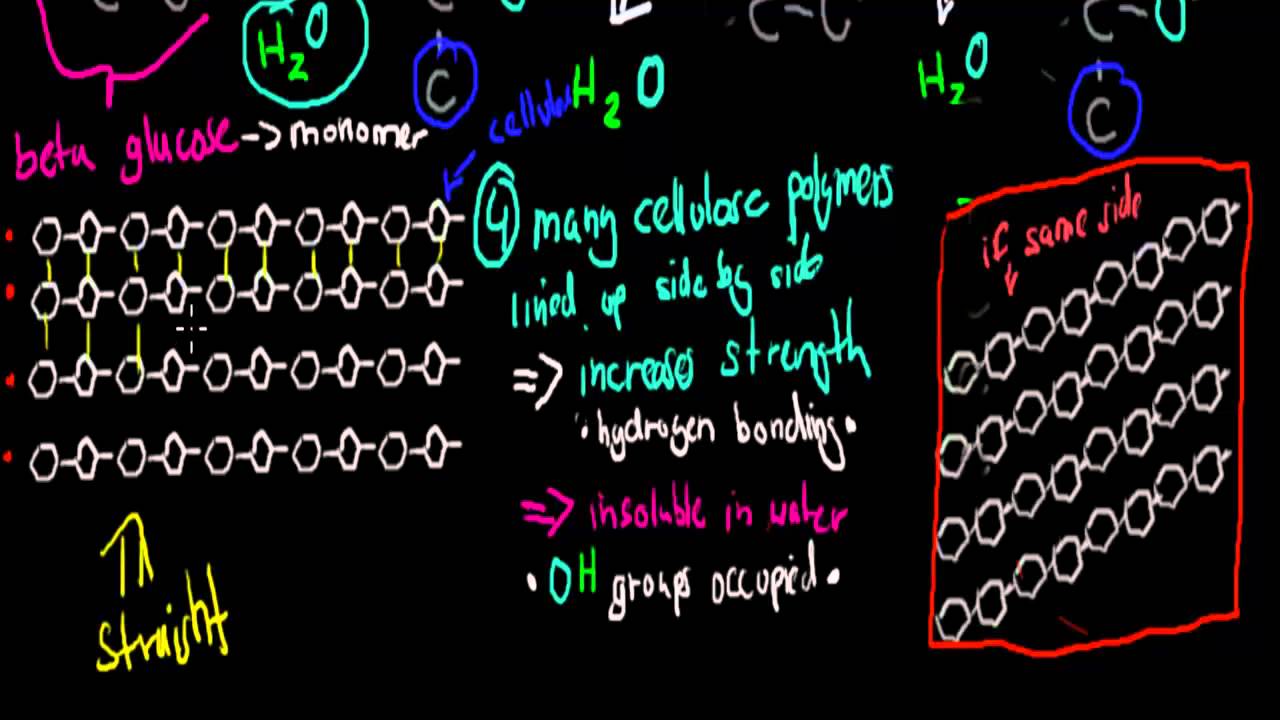 C C
H2O
C
C - C
C - O
H2O
H2O
C
C
beta glucose -> monomer
cellulose
④ many cellulose polymers
lined up side by side
=> increases strength
• hydrogen bonding •
=> insoluble in water
• OH groups occupied •
if same side
straight